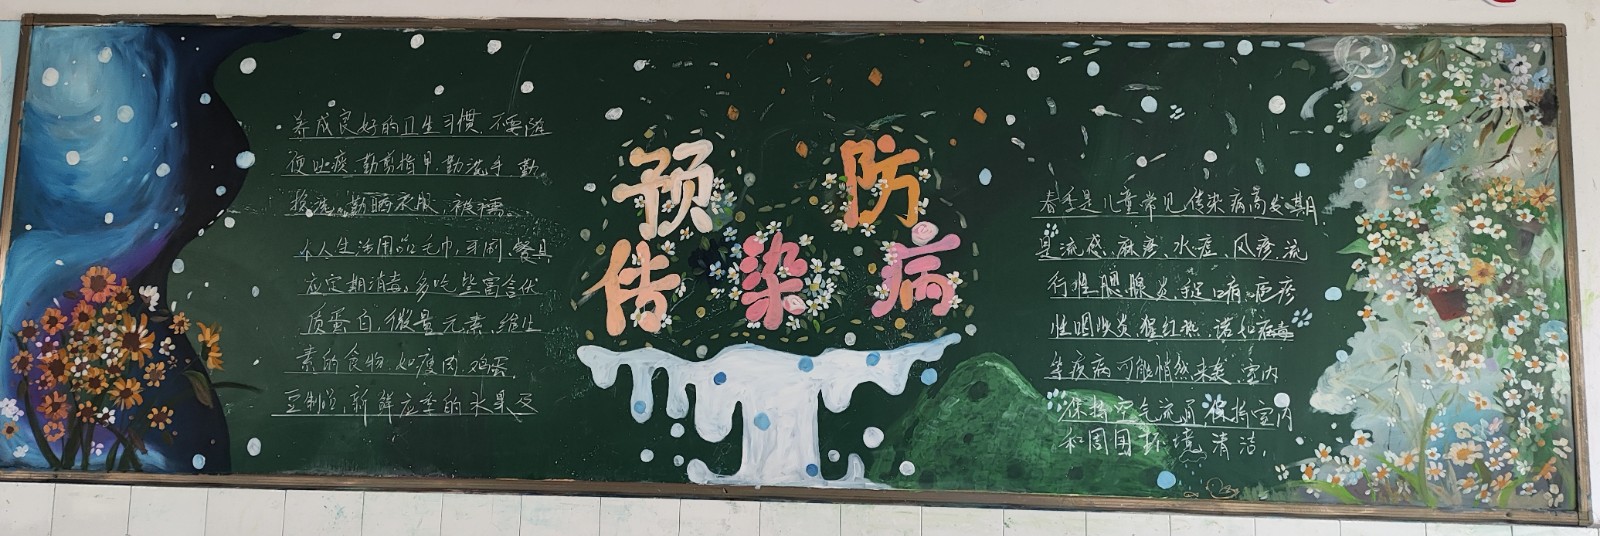 养成良好的卫生习惯,不要随
便吐痰,勤剪指甲,勤洗手,勤
换洗、勤晒衣服、被褥。
个人生活用品毛巾,牙刷,餐具
应定期消毒,多吃些富含优
质蛋白,微量元素、维生
素的食物,如瘦肉,鸡蛋,
豆制品,新鲜应季的水果及
预防
传染病
春季是儿童常见传染病高发期
是流感、麻疹、水痘、风疹、流
行性腮腺炎、手足口病、疱疹
性咽峡炎、猩红热、诺如病毒
等疾病可能悄然来袭,室内
保持空气流通,保持室内
和周围环境清洁.